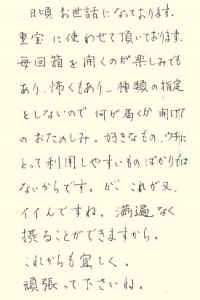 日頃 お世話になっております。
重宝に使わせて頂いております。
毎回箱を開くのが楽しみでも
あり、怖くもあり… 種類の指定
としないので 何が届くか 開けて
のおたのしみ。好きなもの、ウチに
とって利用しやすいものばかりでは
ないからです。が、これが又、
イイんですね。満遍なく
摂ることができますから。
これからも宜しく。
頑張って下さいね。